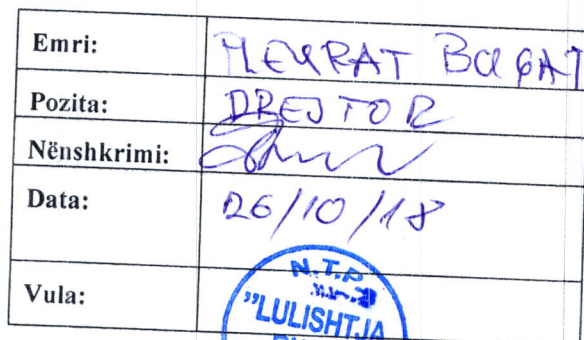 Emri:
Pozita: DREJTOR
Nënshkrimi:
Data: 26/10/18
Vula:
N.T.P
"LULISHTJA